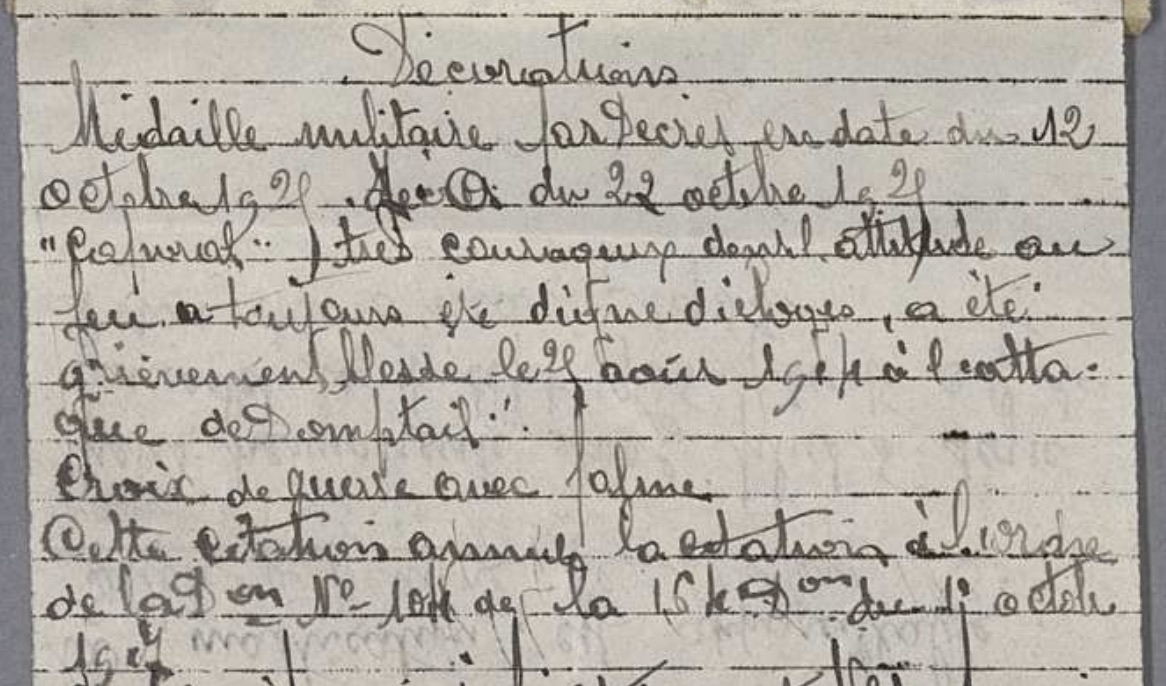 Décorations
Médaille militaire par Décret en date du 12
octobre 1925. du 22 octobre 1925
"Caporal" très courageux dont l'attitude au
feu a toujours été digne d'éloges, a été
grièvement blessé le 25 août 1914 à l'atta-
que de Domptail".
Croix de guerre avec palme
Cette citation annule la citation à l'ordre
de la Don No 104 de la 164e Don du 1er octobre